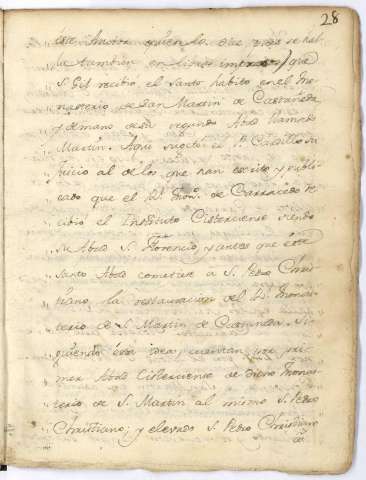 28
este Autor quien lo dice pues se hal-
la tambien en libros impresos) que
S. Gil recibió el Santo habito en el Mo-
nasterio de San Martin de Castañeda
y de mano de su segundo Abad llamado
Martin. Aqui sugetó el P. Cardillo su
Juicio al de los que han escrito y publi-
cado que el Rl. Mono. de Carracedo re-
cibió el Instituto Cisterciense siendo
su Abad S. Florencio, y antes que este
Santo Abad cometiese à S. Pedro Chris-
tiano la restauracion del Rl. Monas-
terio de S. Martin de Castañeda. Si-
guiendo esta idea cuentan por pri-
mer Abad Cisterciense de dicho Monas-
terio de S. Martin al mismo S. Pedro
Christiano; y elevado S. Pedro Christiano